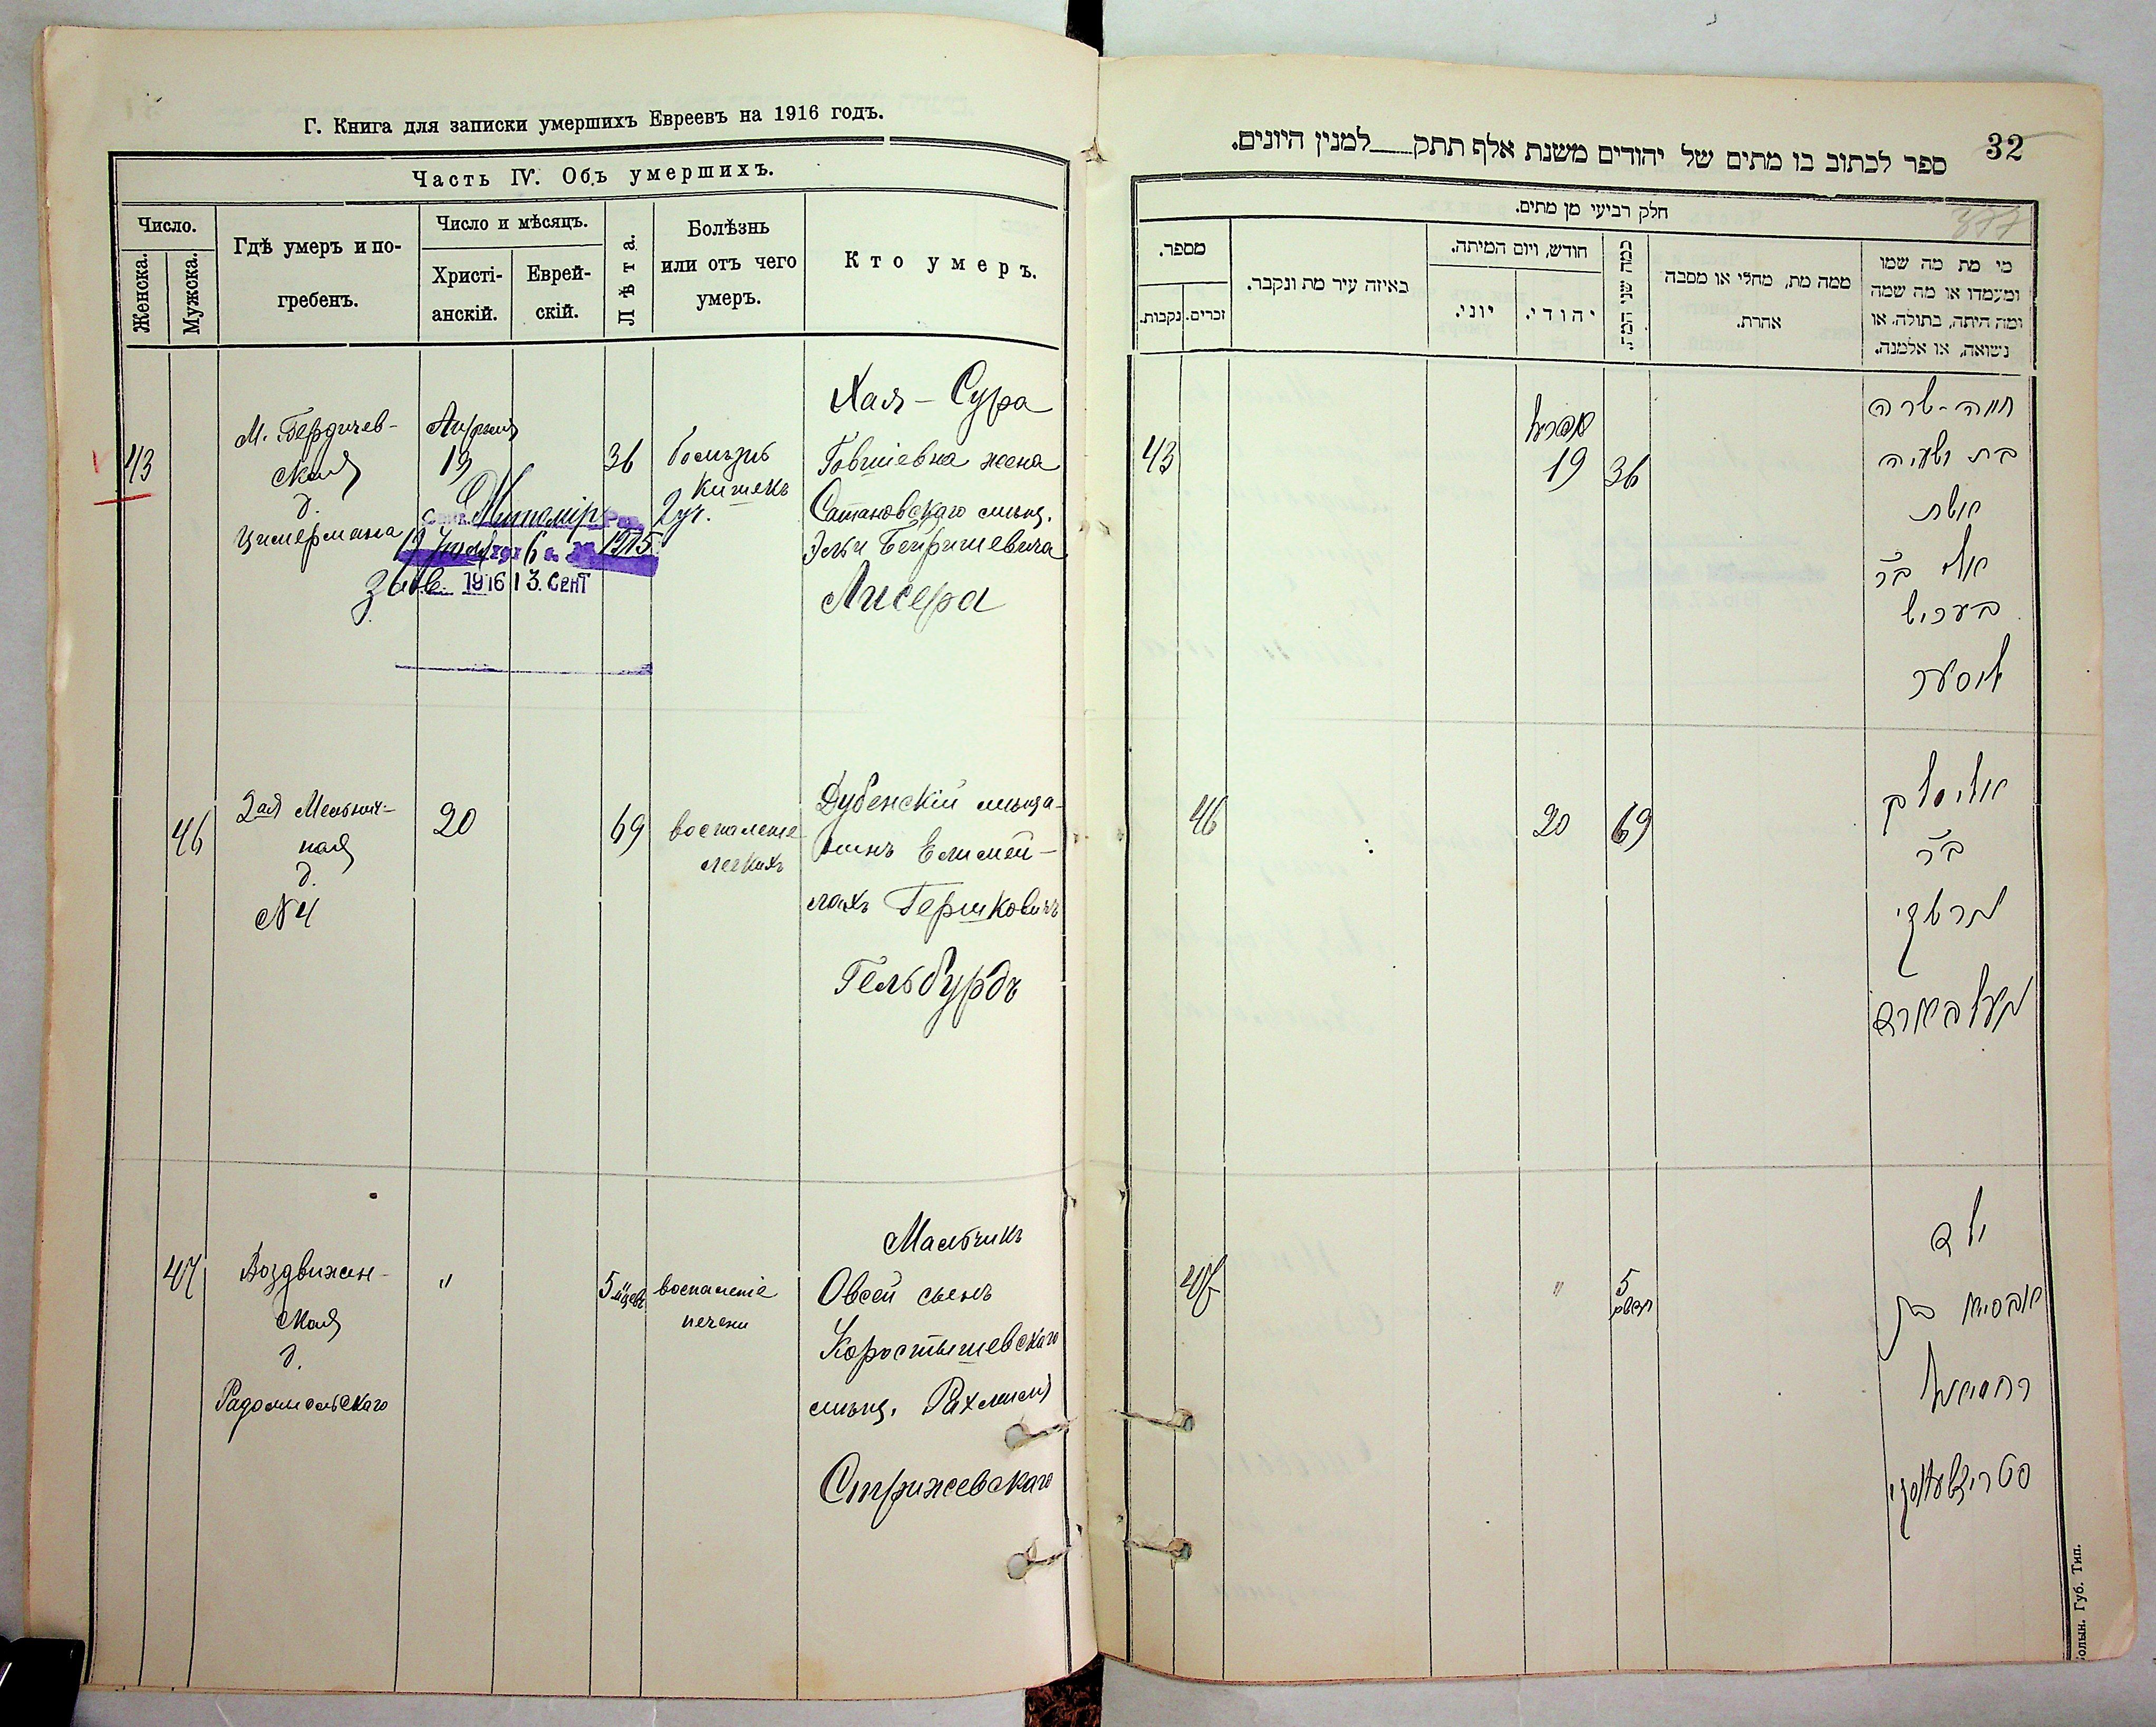 Г. Книга для записки умершихъ Евреевъ на 1916 годъ.
Часть IV. Объ умершихъ.
Число.
Женска.
Мужска.
Гдѣ умеръ и по-
гребенъ.
Число и мѣсяцъ.
Христі-
анскій.
Еврей-
скій.
Лѣта.
Болѣзнь
или отъ чего
умеръ.
Кто умеръ.
43
М. Бердичев-
ская
д.
Цимермана
Апрѣля
19
36
болѣзнь
кишекъ
2 уч.
Хая-Сура
Говшіевна жена
Сатановскаго мѣщ.
Эльи Бейришевича
Лисера
Житомір
1915
1916 13. СЕНТ
46
2ая Мельнич-
ная
д.
№ 4
20
69
воспаленіе
легкихъ
Дубенскій мѣща-
нинъ Елимей-
лахъ Гершковичъ
Гельбурдъ
47
Воздвижен-
ская
д.
Радомысльскаго
"
5 м-цевъ
воспаленіе
печени
Мальчикъ
Овсей сынъ
Коростышевскаго
мѣщ. Рахмиля
Стрижевскаго
32
ספר לכתוב בו מתים של יהודים משנת אלף תתק___למנין היונים.
377
חלק רביעי מן מתים.
מספר.
נקבות.
זכרים.
באיזה עיר מת ונקבר.
חודש, ויום המיתה.
יוני.
יהודי.
כמה שני המת.
ממה מת, מחלי או מסבה
אחרת.
מי מת מה שמו
ומעמדו או מה שמה
ומה היתה, בתולה, או
נשואה, או אלמנה.
43
אפריל
19
36
חיה-שרה
בת ישעיה
אשת
אלי ב"ר
בעריש
ליסער
46
20
69
אלימלך
ב"ר
הרשקי
העלבארד
47
"
5
חדשים
ילד
אבסיי בן
רחמיאל
סטריזשעווסקי
Волын. Губ. Тип.